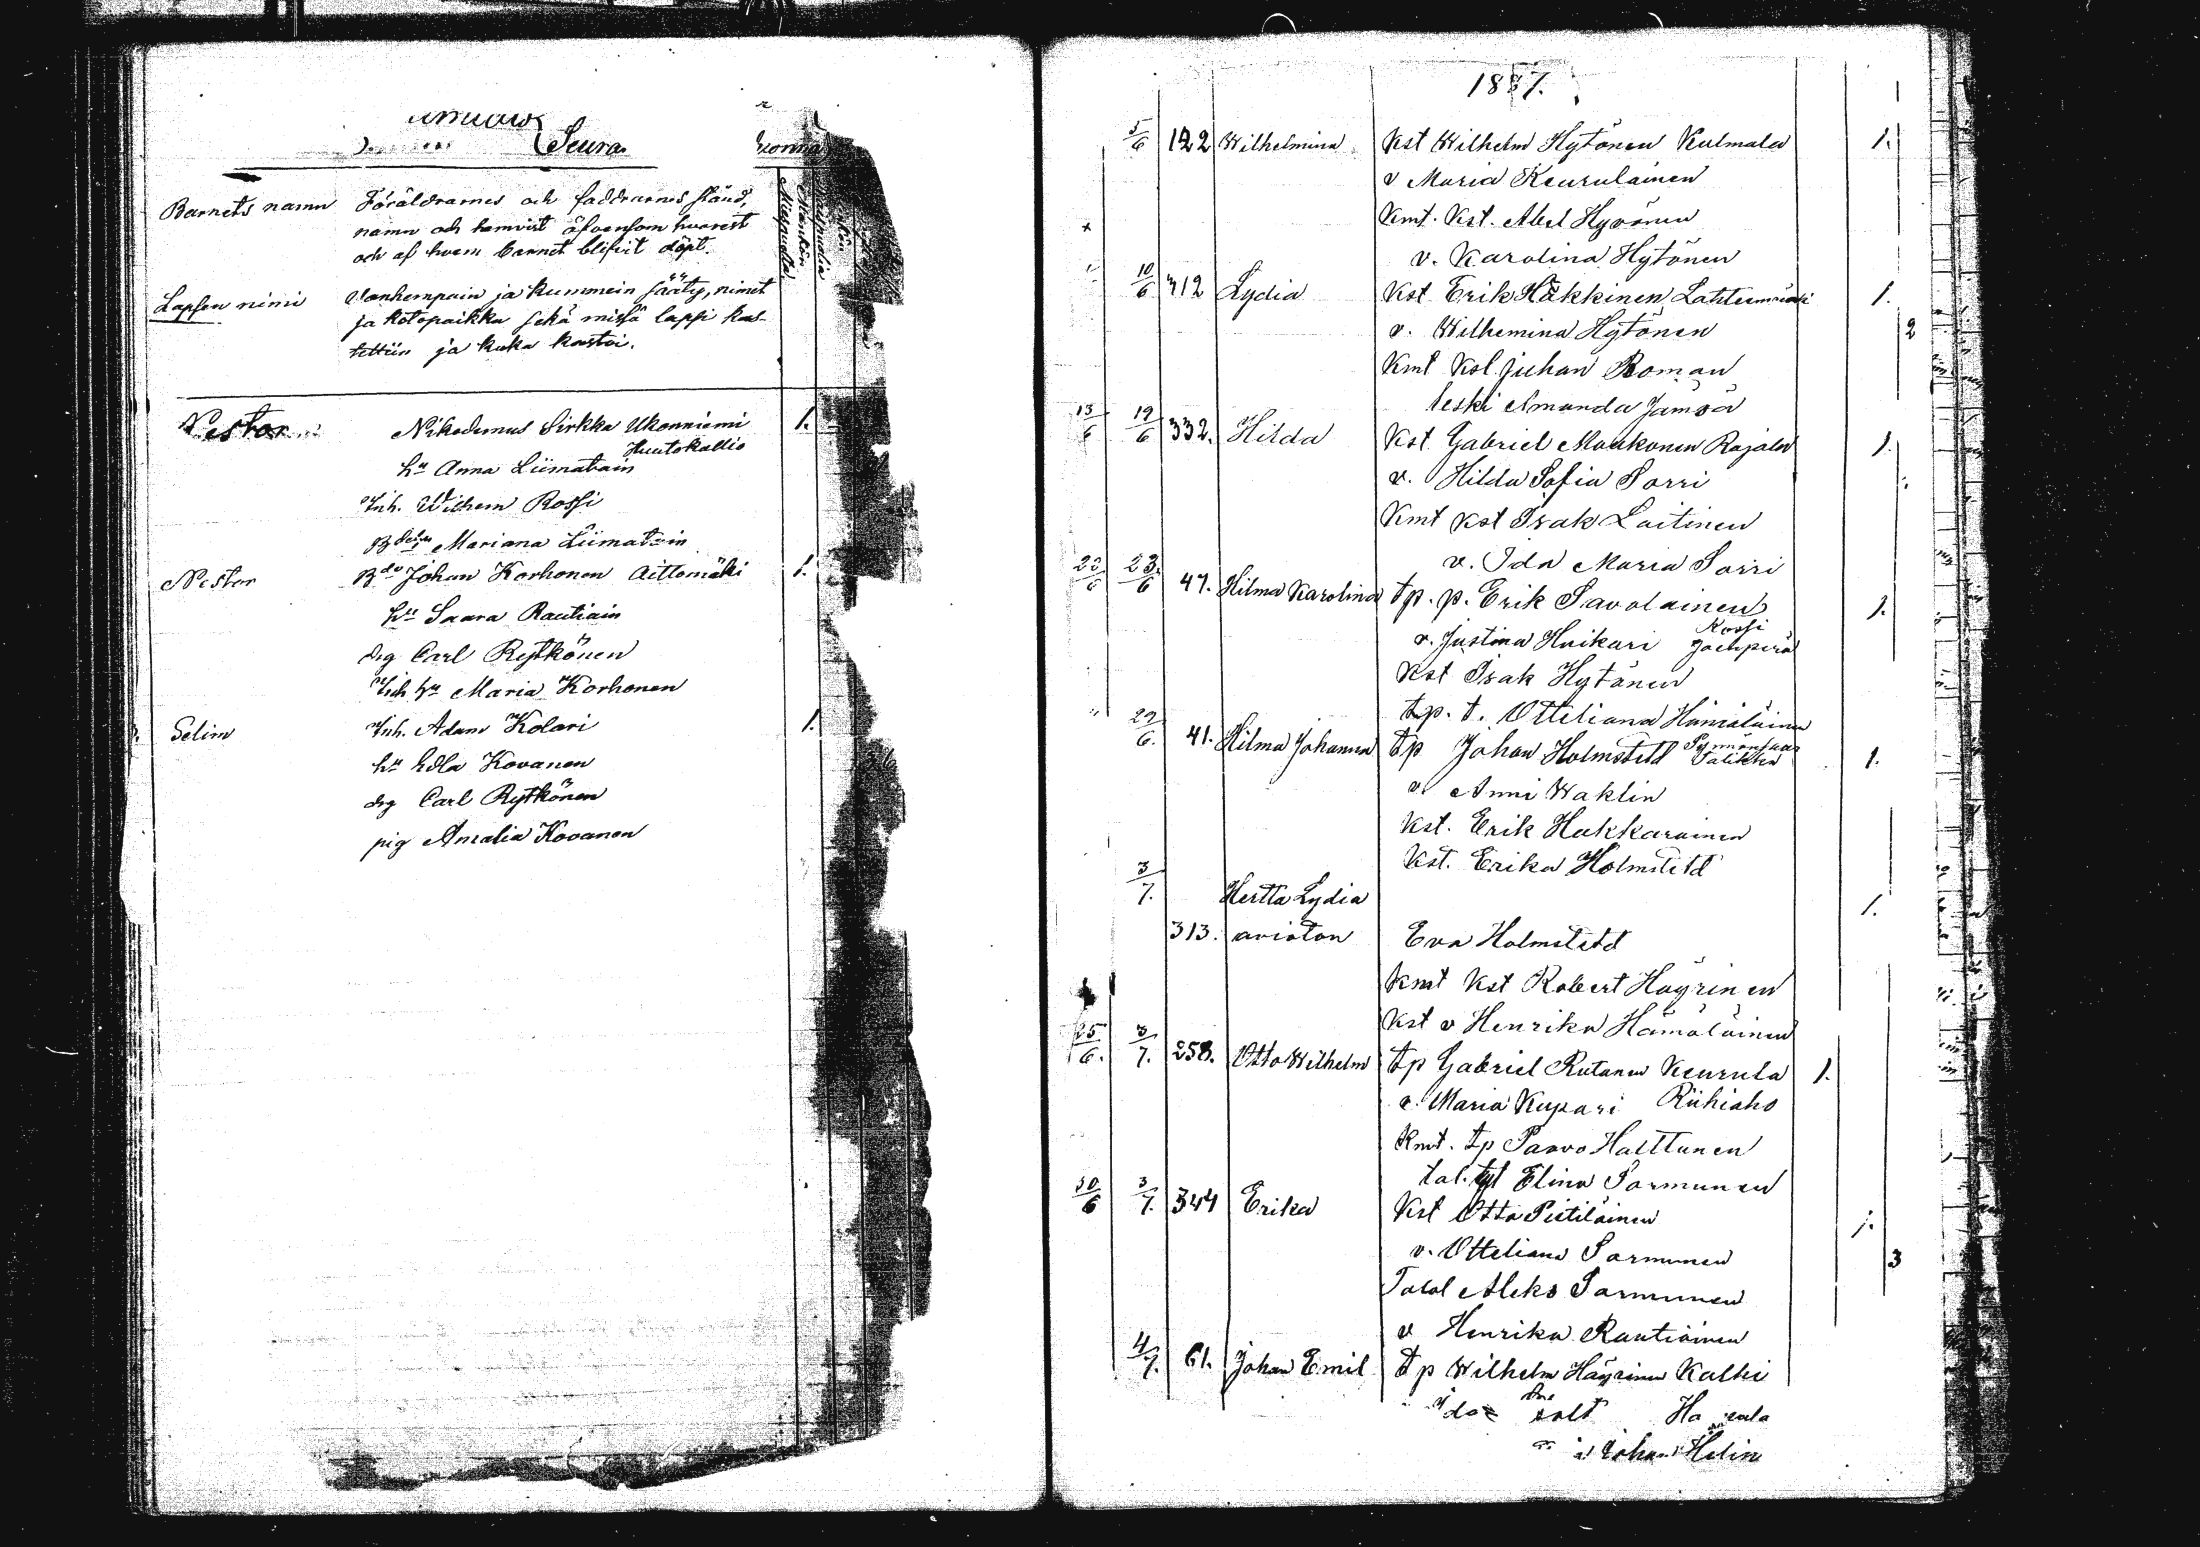 Seura
Barnets namn Föräldrarnes och faddrarnes stånd,
namn och hemvist äfvensom hvarest
och af hvem barnet blifvit döpt.
Lapsen nimi Vanhempain ja kummein sääty, nimet
ja kotopaikka sekä missä lapsi kas-
tettiin ja kuka kastoi.
Nestor Nikodemus Sirkka Ukonniemi 1.
Huutokallio
hu Anna Liimatain
Inh. Wilhem Rossi
Mariana Liimatain
Nestor Johan Korhonen Aittomäki 1.
hu Saara Rautiain
drg Carl Rytkönen
Inh hu Maria Korhonen
Selim Inh. Adam Kolari 1.
hu Edla Kovanen
drg Carl Rytkönen
pig Amalia Kovanen
1887.
5/6 122 Wilhelmina Kst Wilhelm Hytönen Kulmala 1.
v Maria Keurulainen
Kmt. Kst. Abel Hyvönen
v. Karolina Hytönen
10/6 312 Lydia Kst Erik Häkkinen 1.
v. Wilhemina Hytönen 2
Kmt Kst Juhan Roman
leski Amanda Jämsä
13/6 19/6 332. Hilda Kst Gabriel Maukonen Rajala 1.
v. Hilda Sofia Sorri
Kmt Kst Isak Laitinen
v. Ida Maria Sorri
22/6 23/6 47. Hilma Karolina tp. p. Erik Savolainen 1.
Rossi
v. Justina Huikari Joenperä
Kst Isak Hytönen
tp. t. Otteliana Hämäläinen
29/6. 41. Hilma Johanna tp Johan Holmstedt 1.
v. Anni Waklin
Kst. Erik Hakkarainen
Kst. Erika Holmstedt
3/7. Hertta Lydia 1.
313. avioton Eva Holmstedt
Kmt Kst Robert Häyrinen
Kst v Henrika Hämäläinen
25/6. 3/7. 258. Otto Wilhelm tp Gabriel Rutanen Keurula 1.
v. Maria Kupari Riihiaho
Kmt. tp Paavo Halttunen
tal. tyt Elina Sormunen
30/6 3/7. 344 Erika Kst Otto Pietiläinen 1.
v. Otteliana Sormunen 3
Talol Aleks Sormunen
v Henrika Rautiainen
4/7. 61. Johan Emil tp Wilhelm Häyrinen Kalhi
Ida
Johan Helin